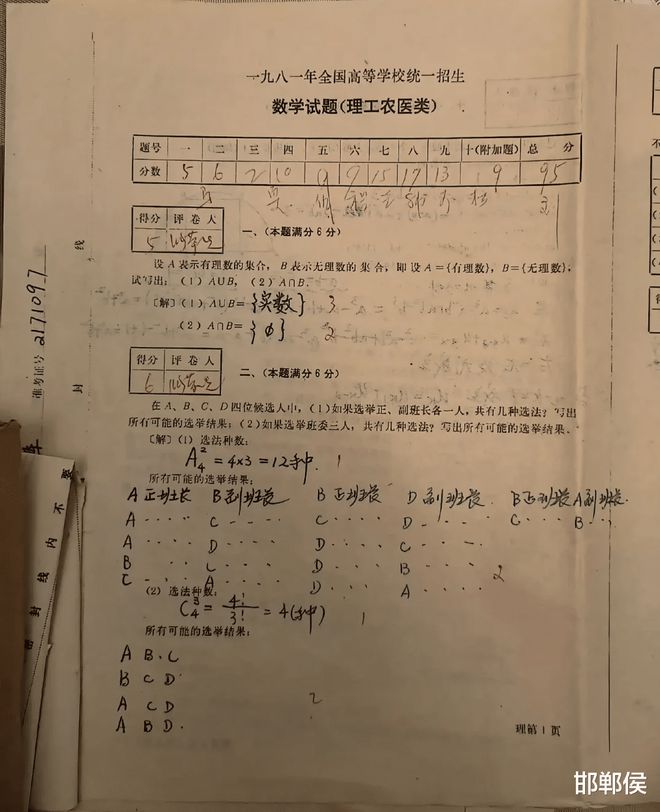 一九八一年全国高等学校统一招生
数学试题(理工农医类)
题号 一 二 三 四 五 六 七 八 九 十(附加题) 总 分
分数 5 6 2 10 9 7 15 17 13 9 95
得分 评卷人
5
一、(本题满分6分)
设A表示有理数的集合,B表示无理数的集合,即设A={有理数},B={无理数},
试写出:(1)A∪B,(2)A∩B.
〔解〕(1)A∪B= {实数} 3
(2)A∩B= {φ} 2
得分 评卷人
6
二、(本题满分6分)
在A、B、C、D四位候选人中,(1)如果选举正、副班长各一人,共有几种选法?写出
所有可能的选举结果;(2)如果选举班委三人,共有几种选法?写出所有可能的选举结果.
〔解〕(1)选法种数:
A₄² = 4×3 = 12种. 1
所有可能的选举结果:
A 正班长 B 副班长 B 正班长 D 副班长 B正班长 A副班长.
A ···· C ···· C ···· D ···· C ··· B ···
A ···· D ···· D ···· C ····
B ···· C ···· D ···· B ···· 2
C ···· A ···· D ···· A ····
(2)选法种数:
C₄³ = 4!/3! = 4(种) 1
所有可能的选举结果:
A B. C
B C D
A C D 2
A B D.
理第1页
准考证号 2171097
封 线
密 封 线 内 不 要
邯郸侯